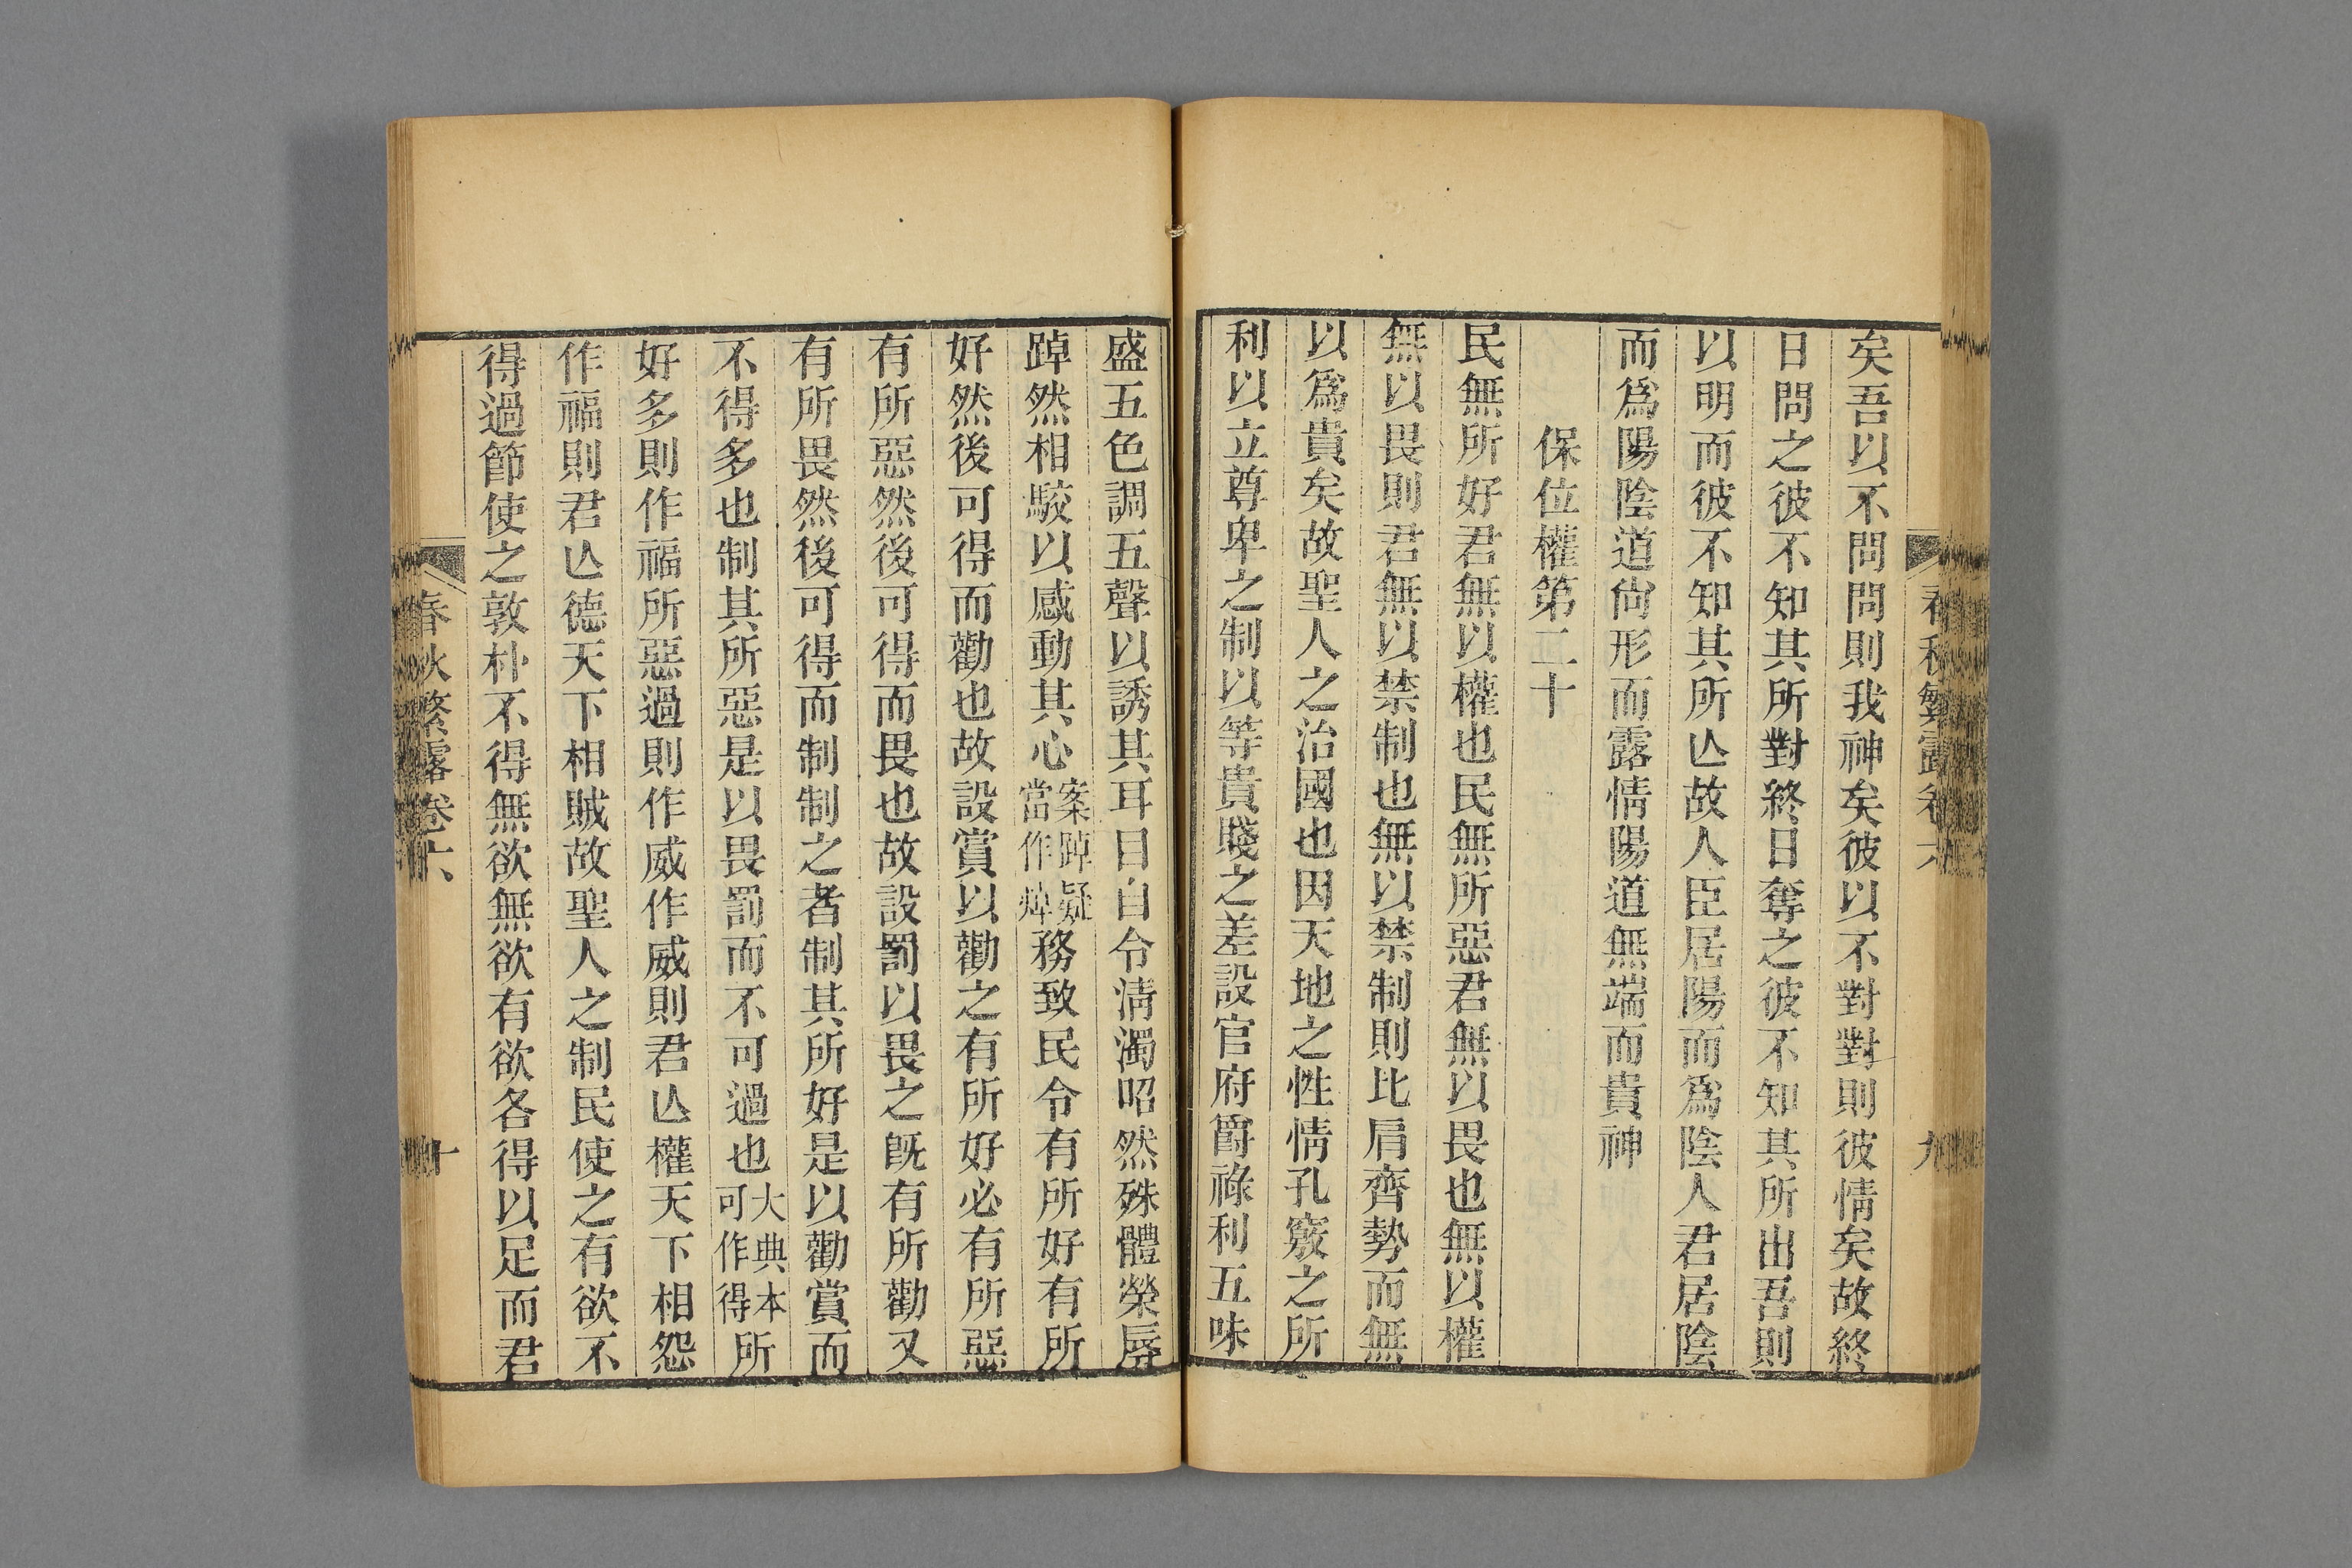 春秋繁露卷六
九
矣吾以不問問則我神矣彼以不對對則彼情矣故終
日問之彼不知其所對終日奪之彼不知其所出吾則
以明而彼不知其所亾故人臣居陽而爲陰人君居陰
而爲陽陰道尙形而露情陽道無端而貴神
保位權第二十
民無所好君無以權也民無所惡君無以畏也無以權
無以畏則君無以禁制也無以禁制則比肩齊勢而無
以爲貴矣故聖人之治國也因天地之性情孔竅之所
利以立尊卑之制以等貴賤之差設官府爵祿利五味
盛五色調五聲以誘其耳目自令淸濁昭然殊體榮辱
踔然相駮以感動其心案踔疑當作焯務致民令有所好有所
好然後可得而勸也故設賞以勸之有所好必有所惡
有所惡然後可得而畏也故設罰以畏之旣有所勸又
有所畏然後可得而制制之者制其所好是以勸賞而
不得多也制其所惡是以畏罰而不可過也大典本可作得所
好多則作福所惡過則作威作威則君亾權天下相怨
作福則君亾德天下相賊故聖人之制民使之有欲不
得過節使之敦朴不得無欲無欲有欲各得以足而君
春秋繁露卷六
十